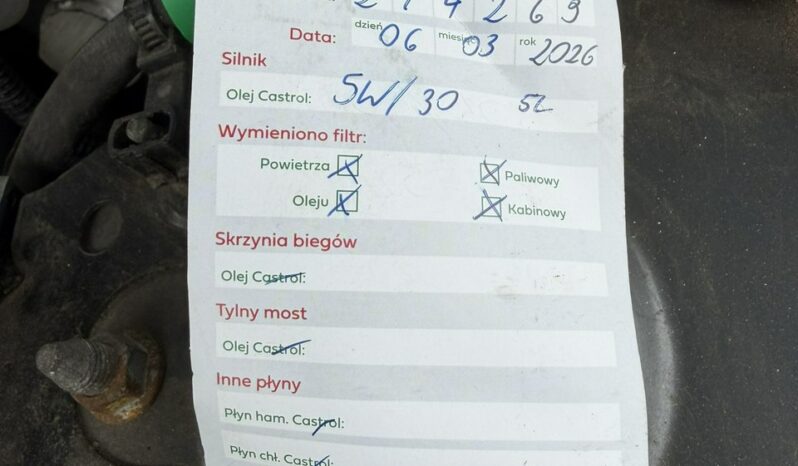 2 1 4 2 6 9
Data: dzień 06 miesiąc 03 rok 2026
Silnik
Olej Castrol: 5W/30 5L
Wymieniono filtr:
Powietrza Paliwowy
Oleju Kabinowy
Skrzynia biegów
Olej Castrol:
Tylny most
Olej Castrol:
Inne płyny
Płyn ham. Castrol:
Płyn chł. Castrol: